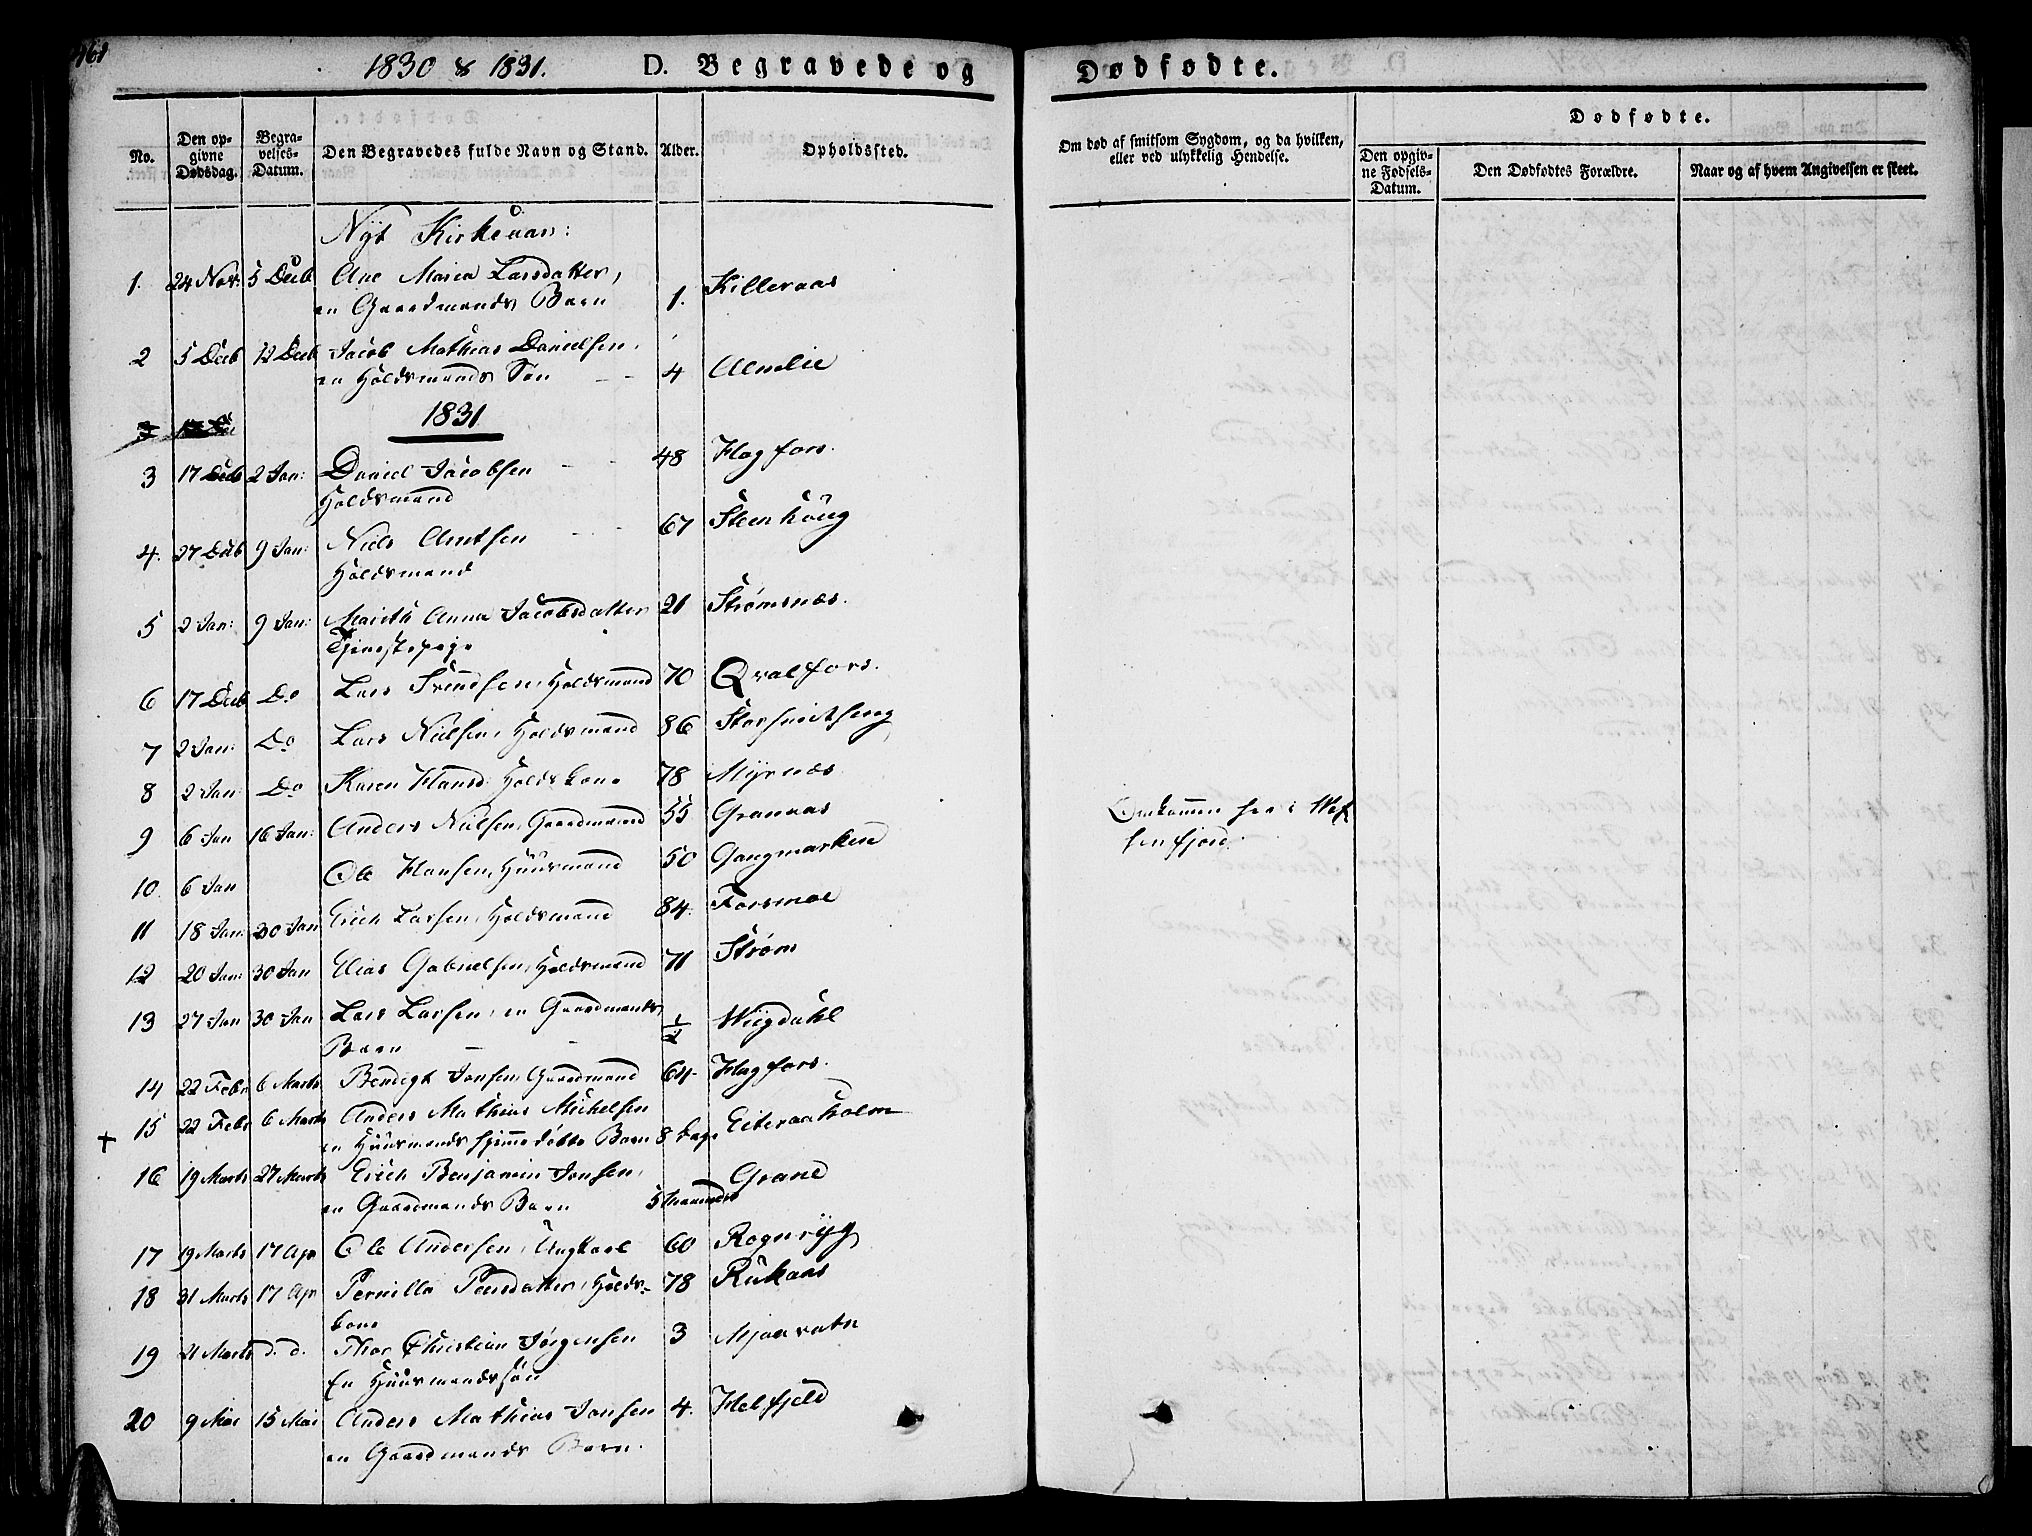 461
1830 & 1831.
D. Begravede og
Dødfødte.
No.
Den opgivne Dødsdag.
Begravelses-Datum.
Den Begravedes fulde Navn og Stand.
Alder.
Opholdssted.
Om død af smitsom Sygdom, og da hvilken, eller ved ulykkelig Hendelse.
Dødfødte.
Den opgivne Fødsels-Datum.
Den Dødfødtes Forældre.
Naar og af hvem Angivelsen er skeet.
Nÿt Kirkeaar:
1. 24 Nov: 5 Decb Ane Maria Larsdatter, 1. Killeraas
en Gaardmands Barn
2 5 Decb 12 Decb Jacob Mathias Danielsen, 4 Almlie
en Holdsmands Søn
1831
3 17 Decb 2 Jan: Daniel Jacobsen 48 Hagfors.
Holdsmand
4. 27 Decb 9 Jan: Niels Arntsen 67 Steenhoug
Holdsmand
5 2 Jan: 9 Jan: Marith Anna Jacobsdatter 21 Strømsnæs.
Tjenestepige
6 17 Decb Do Lars Svendsen, Holdsmand 70 Qvalfors.
7 2 Jan: Do Lars Nielsen, Holdsmand 86 Storsmitseng
8 2 Jan: Do Karen Hansd: Holdskone 78 Mÿrnæs
9 6 Jan 16 Jan: Anders Nielsen, Gaardmand 55 Granaas
Omkommen her i Wef
senfjord
10. 6 Jan Ole Hansen, Huusmand 50 Gangmarken
11 18 Jan: 30 Jan Erich Larsen, Holdsmand 84. Forsmoe
12 20 Jan: 30 Jan Elias Gabrielsen, Holdsmand 71 Strøm
13 27 Jan 30 Jan Lars Larsen, en Gaardmands 1/2 Wiigdahl
Barn
14 22 Febr 6 Marts Bendigt Jonsen, Gaardmand 64. Hagfors.
+ 15 22 Febr 6 Marts Anders Mathias Michelsen 8 Dage Eiteraaholm
en Huusmands hjemmedøbte Barn
16 19 Marts 27 Marts Erich Benjamin Jonsen, 5 Maaneder Grane
en Gaardmands Barn
17 19 Marts 17 Apr Ole Andersen, Ungkarl 60 Rognrÿg
18 31 Marts 17 Apr Pernilla Pedersdatter, Holds- 78 Rukaas
kone
19 21 Marts d. d. Thor Christian Jørgensen 3 Mjaavatn
En Huusmands søn
20 9 Mai 15 Mai Anders Mathias Jonsen 4. Helfjeld
en Gaardmands Barn.